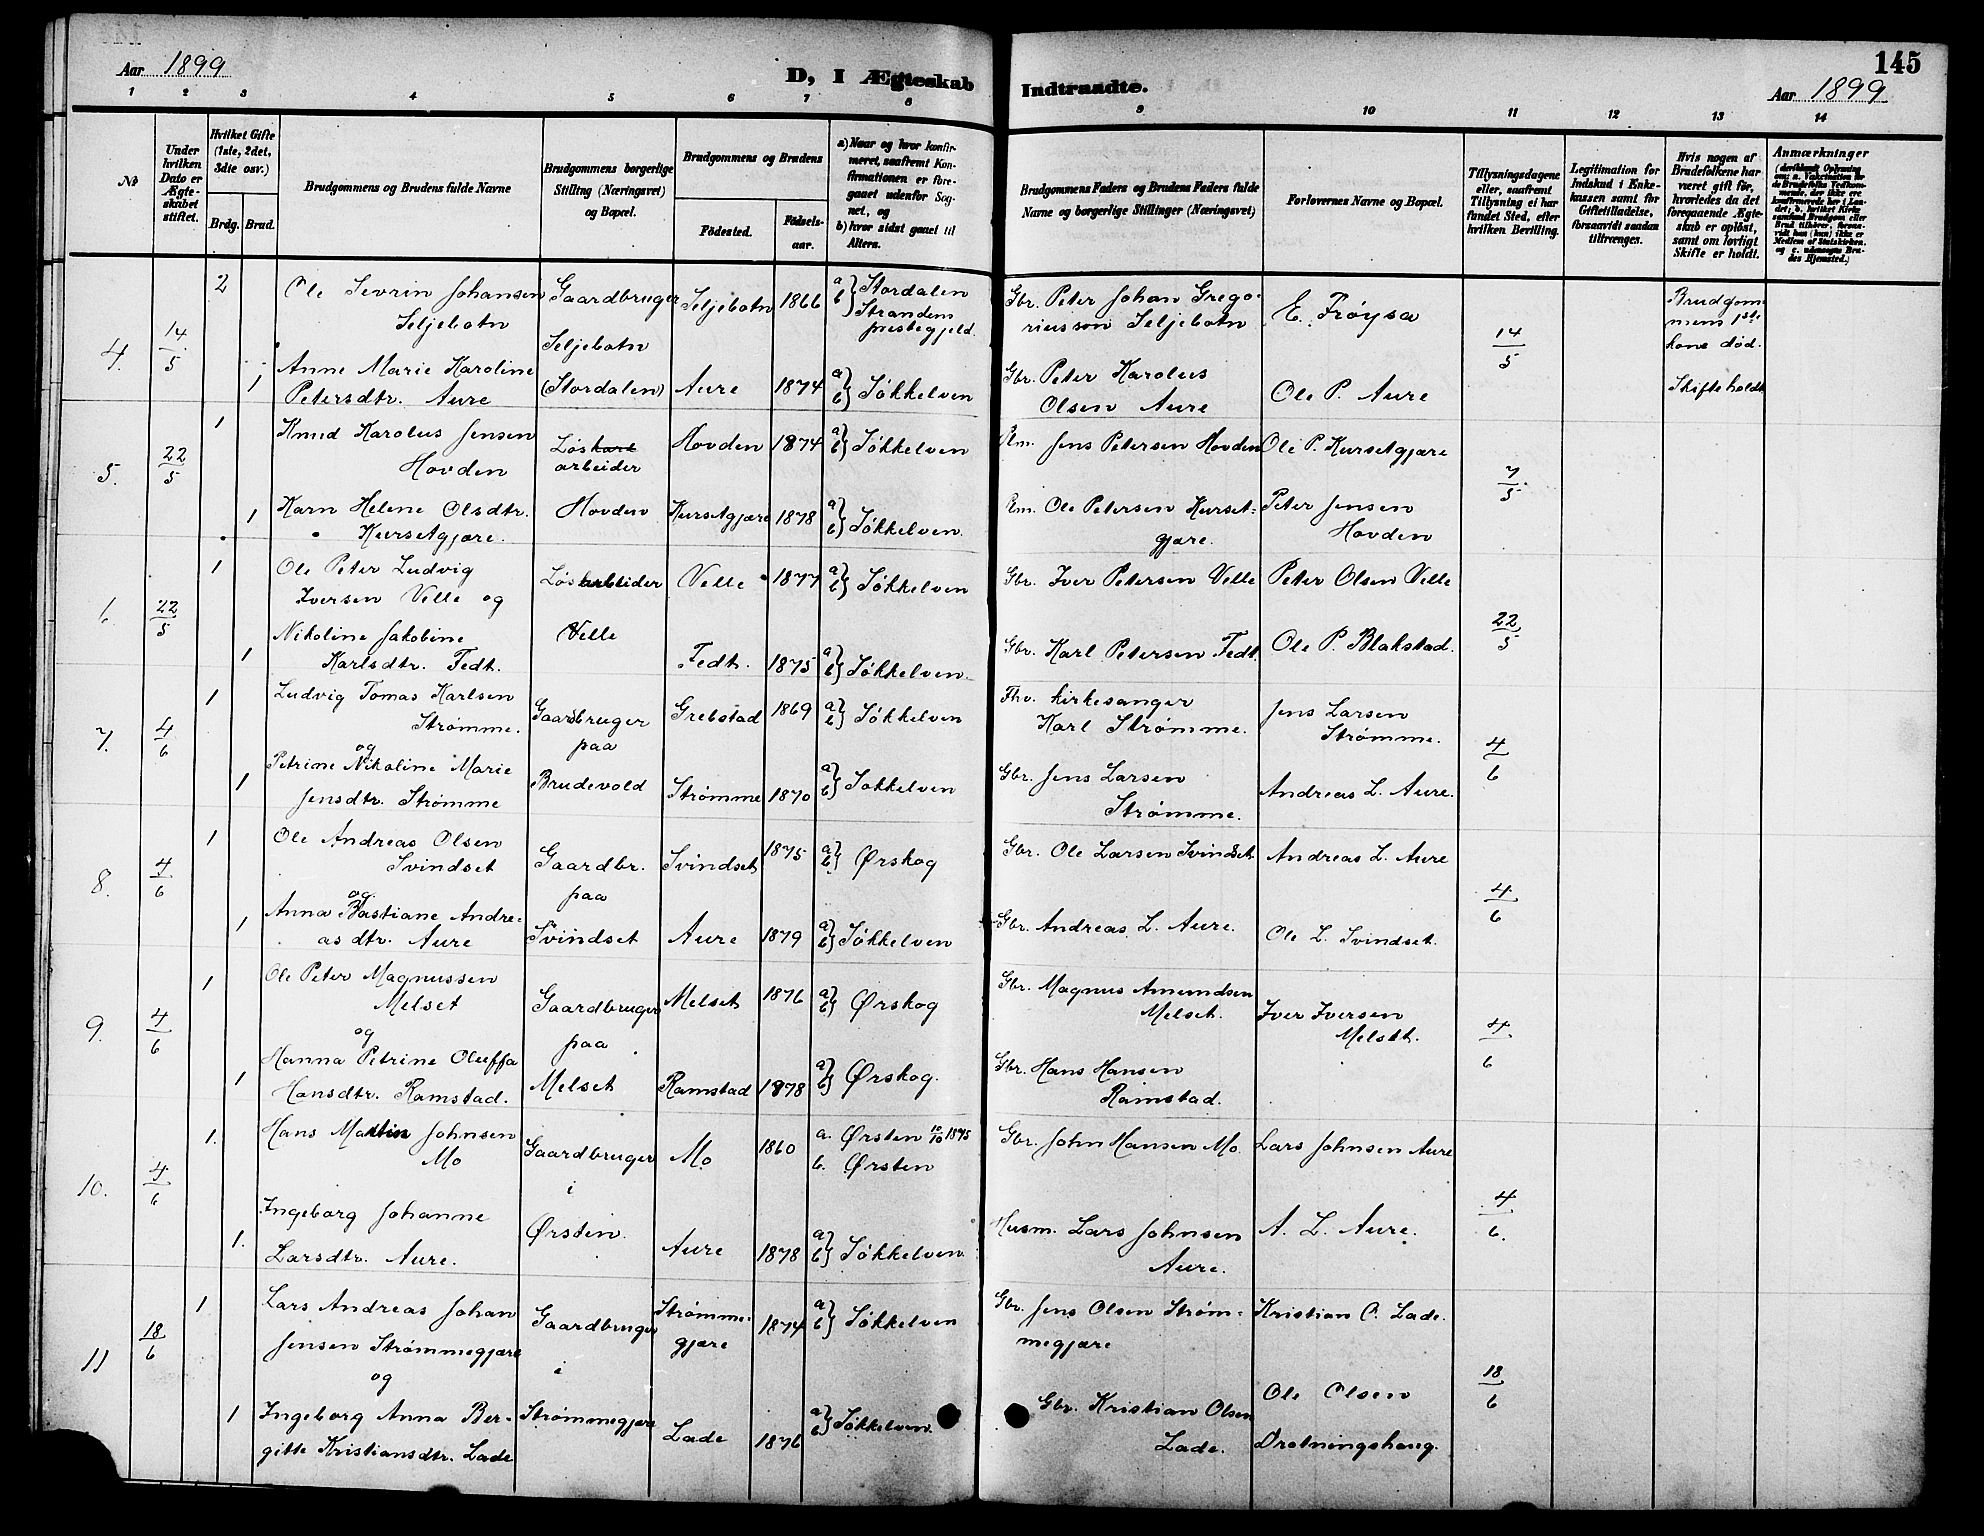 Aar 1899
D, I Ægteskab
Indtraadte.
145
Aar 1899
1 2 3 4 5 6 7 8 9 10 11 12 13 14
No
Under hvilken Dato er Ægteskabet stiftet.
Hvilket Gifte (1ste, 2det, 3die osv.)
Brdg. Brud.
Brudgommens og Brudens fulde Navne
Brudgommens borgerlige Stilling (Næringsvei) og Bopæl.
Brudgommens og Brudens
Fødested.
Fødsels-aar.
a) Naar og hvor konfirmeret, saafremt Konfirmationen er foregaaet udenfor Sognet, og
b) hvor sidst gaaet til Alters.
Brudgommens Faders og Brudens Faders fulde Navne og borgerlige Stillinger (Næringsvei)
Forlovernes Navne og Bopæl.
Tillysningsdagene eller, saafremt Tillysning ei har fundet Sted, efter hvilken Bevilling.
Legitimation for Indskud i Enkekassen samt for Giftetilladelse, forsaavidt saadan tiltrænges.
Hvis nogen af Brudefolkene har været gift før, hvorledes da det foregaaende Ægteskab er opløst, samt om lovligt Skifte er holdt.
Anmærkninger
4. 14/5 2 Ole Sevrin Johansen Seljebotn Gaardbruger Seljebotn (Stordalen) Seljebotn 1866 a b } Stordalen Strandens prestegjeld. Gbr. Peter Johan Gregoriusson Seljebotn E. Frøysa 14/5 Brudgommens 1ste kone død. Skifte holdt
1 Anne Marie Karoline Petersdtr. Aure Aure 1874 a b } Søkkelven Gbr. Peter Karolus Olsen Aure Ole P. Aure
5. 22/5 1 Knud Karolus Jensen Hovden Løsarbeider Hovden Hovden 1874 a b } Søkkelven Jens Petersen Hovden Ole P. Kursetgjære 7/5
1 Karn Helene Olsdtr. Kursetgjære. Kursetgjære 1878 a b } Søkkelven. Ole Petersen Kursetgjære. Peter Jensen Hovden
6. 22/5 1 Ole Peter Ludvig Iversen Velle og Løsarbeider Velle Velle 1877 a b } Søkkelven Gbr. Iver Petersen Velle Peter Olsen Velle 22/5
1 Nikoline Jakobine Karlsdtr. Fedt. Fedt. 1875 a b } Søkkelven. Gbr. Karl Petersen Fedt. Ole P. Blakstad.
7. 4/6 1 Ludvig Tomas Karlsen Strømme. og Gaardbruger paa Brudevold Grebstad 1869 a b } Søkkelven Fhv. kirkesanger Karl Strømme. Jens Larsen Strømme. 4/6
1 Petrine Nikoline Marie Jensdtr. Strømme Strømme 1870 a b } Søkkelven Gbr. Jens Larsen Strømme. Andreas L. Aure.
8. 4/6 1 Ole Andreas Olsen Svindset og Gaardbr. paa Svindset Svindset 1875 a b } Ørskog Gbr. Ole Larsen Svindset Andreas L. Aure 4/6
1 Anna Bastiane Andreasdtr. Aure Aure 1879 a b } Søkkelven Gbr. Andreas L. Aure. Ole L. Svindset.
9. 4/6 1 Ole Peter Magnussen Melset og Gaardbruger paa Melset Melset 1876 a b } Ørskog Gbr. Magnus Amundsen Melset. Iver Iversen Melset. 4/6
1 Hanna Petrine Oluffa Hansdtr. Ramstad. Ramstad 1878 a b } Ørskog. Gbr. Hans Hansen Ramstad.
10. 4/6 1. Hans Martin Johnsen Mo Gaardbruger i Ørsten. Mo 1860 a. Ørsten 10/10 1875 b. Ørsten Gbr. John Hansen Mo. Lars Johnsen Aure 4/6.
1. Ingeborg Johanne Larsdtr. Aure. Aure 1878 a b } Søkkelven. Husm. Lars Johnsen Aure. A. L. Aure.
11 18/6 1 Lars Andreas Johan Jensen Strømmegjære og Gaardbruger i Strømmegjære Strømmegjære 1874 a b } Søkkelven Gbr. Jens Olsen Strømmegjære Kristian O. Lade. 18/6
1 Ingeborg Anna Bergitte Kristiansdtr. Lade Lade 1876 a b } Søkkelven. Gbr. Kristian Olsen Lade. Ole Olsen Drotningshaug.